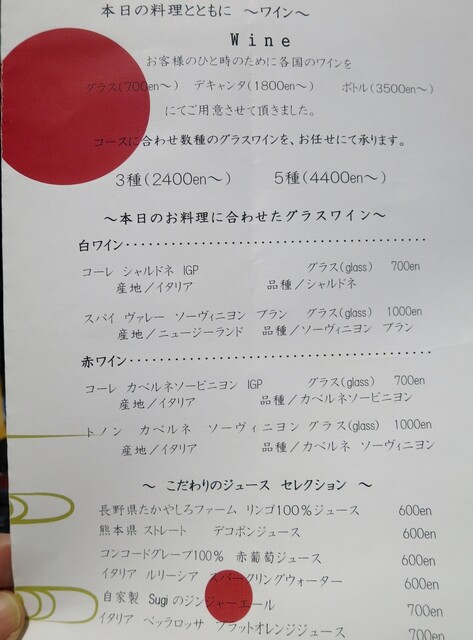 本日の料理とともに ～ワイン～
Wine
お客様のひと時のために各国のワインを
グラス(700en～) デキャンタ(1800en～) ボトル(3500en～)
にてご用意させて頂きました。
コースに合わせ数種のグラスワインを、お任せにて承ります。
3種(2400en～) 5種(4400en～)
～本日のお料理に合わせたグラスワイン～
白ワイン・・・・・・・・・・・・・・・・・・・・・・・・・・・・・・・・・・・・・・・・
コーレ シャルドネ IGP グラス(glass) 700en
産地/イタリア 品種/シャルドネ
スパイ ヴァレー ソーヴィニヨン ブラン グラス(glass) 1000en
産地/ニュージーランド 品種/ソーヴィニヨン ブラン
赤ワイン・・・・・・・・・・・・・・・・・・・・・・・・・・・・・・・・・・・・・・・・
コーレ カベルネソービニヨン IGP グラス(glass) 700en
産地/イタリア 品種/カベルネソービニヨン
トノン カベルネ ソーヴィニヨン グラス(glass) 1000en
産地/イタリア 品種/カベルネ ソーヴィニヨン
～ こだわりのジュース セレクション ～
長野県たかやしろファーム リンゴ100%ジュース 600en
熊本県 ストレート デコポンジュース 600en
コンコードグレープ100% 赤葡萄ジュース 600en
イタリア ルリーシア スパークリングウォーター 600en
自家製 Sugiのジンジャーエール 700en
イタリア ベッラロッサ ブラットオレンジジュース 700en